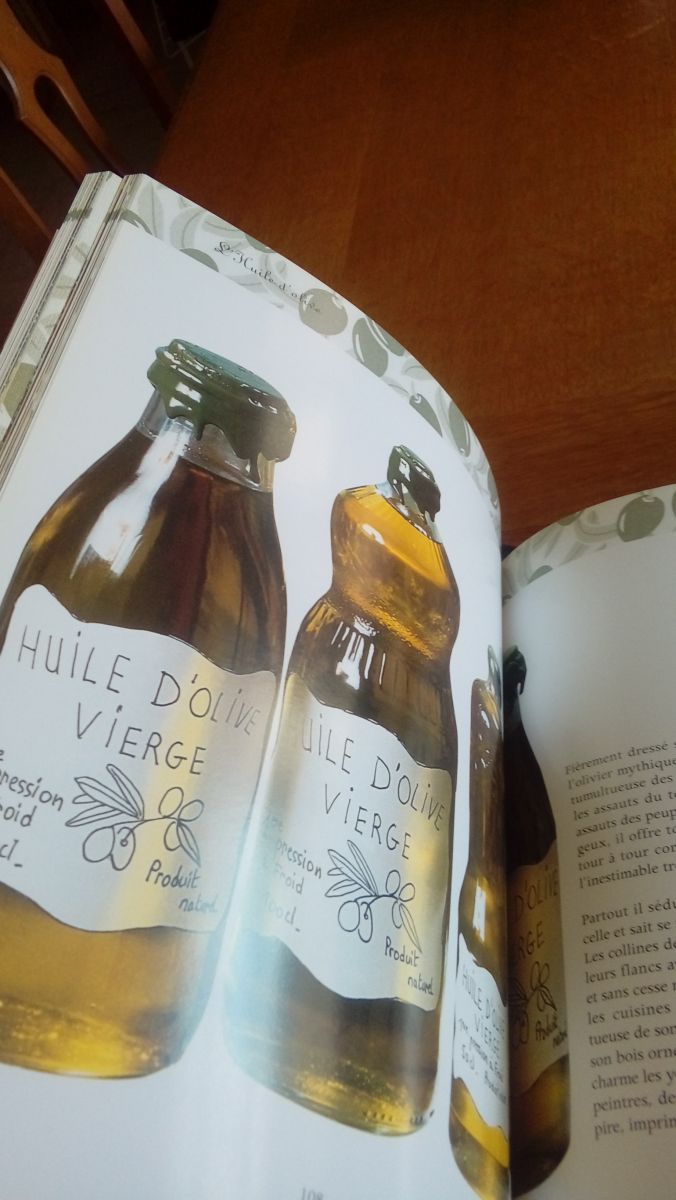 L'Huile d'olive
HUiLE D'OLiVE
ViERGE
pression
froid
cl_
Produit
naturel
HUiLE D'OLiVE
ViERGE
pression
froid
100cl_
Produit
naturel
HUiLE D'OLiVE
ViERGE
50cl_
Produit
D'OLiVE
RGE
Produit
108
Fièrement dressé
l'olivier mythique
tumultueuse des
les assauts du
assauts des
geux, il offre
tour à tour
l'inestimable
Partout il
celle et sait se
Les collines
leurs flancs
et sans cesse
les cuisines
tueuse de son
son bois
charme les
peintres, de
pire,